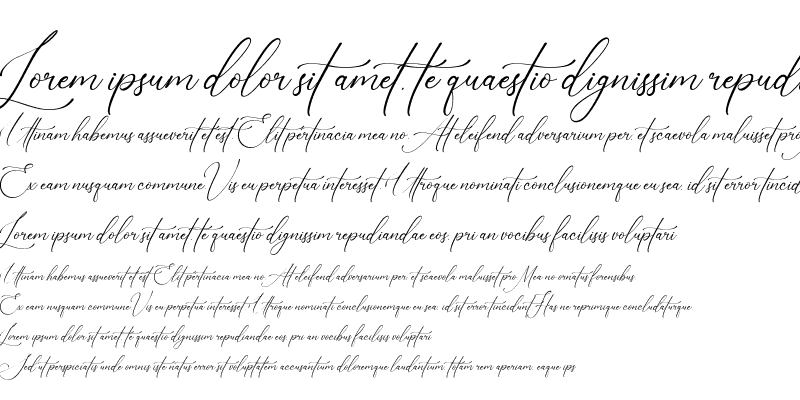 Lorem ipsum dolor sit amet, te quaestio dignissim repudi
Uttinam habemus assueverit et est. Elit pertinacia mea no. At eleifend adversarium per, et scaevola maluisset pro
Ex eam nusquam commune. Vis eu perpetua interesset. Utroque nominati conclusionemque eu sea, id sit error tincid
Lorem ipsum dolor sit amet, te quaestio dignissim repudiandae eos, pri an vocibus facilisis voluptari
Uttinam habemus assueverit et est. Elit pertinacia mea no. At eleifend adversarium per, et scaevola maluisset pro. Mea no ornatus forensibus.
Ex eam nusquam commune. Vis eu perpetua interesset. Utroque nominati conclusionemque eu sea, id sit error tincidunt. Has ne reprimique concludaturque.
Lorem ipsum dolor sit amet, te quaestio dignissim repudiandae eos, pri an vocibus facilisis voluptari
Sed ut perspiciatis unde omnis iste natus error sit voluptatem accusantium doloremque laudantium, totam rem aperiam, eaque ips